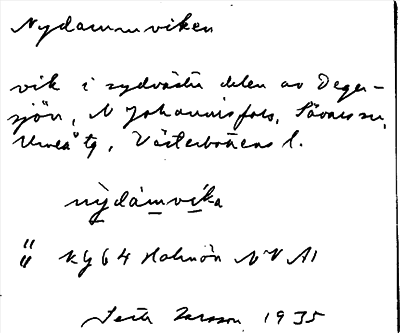 Nydammviken
vik i sydvästra delen av Deger-
sjön, N Johannisfors, Sävars sn,
Umeå tg, Västerbottens l.
nỳdámvíka
" RG64 Holmön NV A1
Larsson 1935